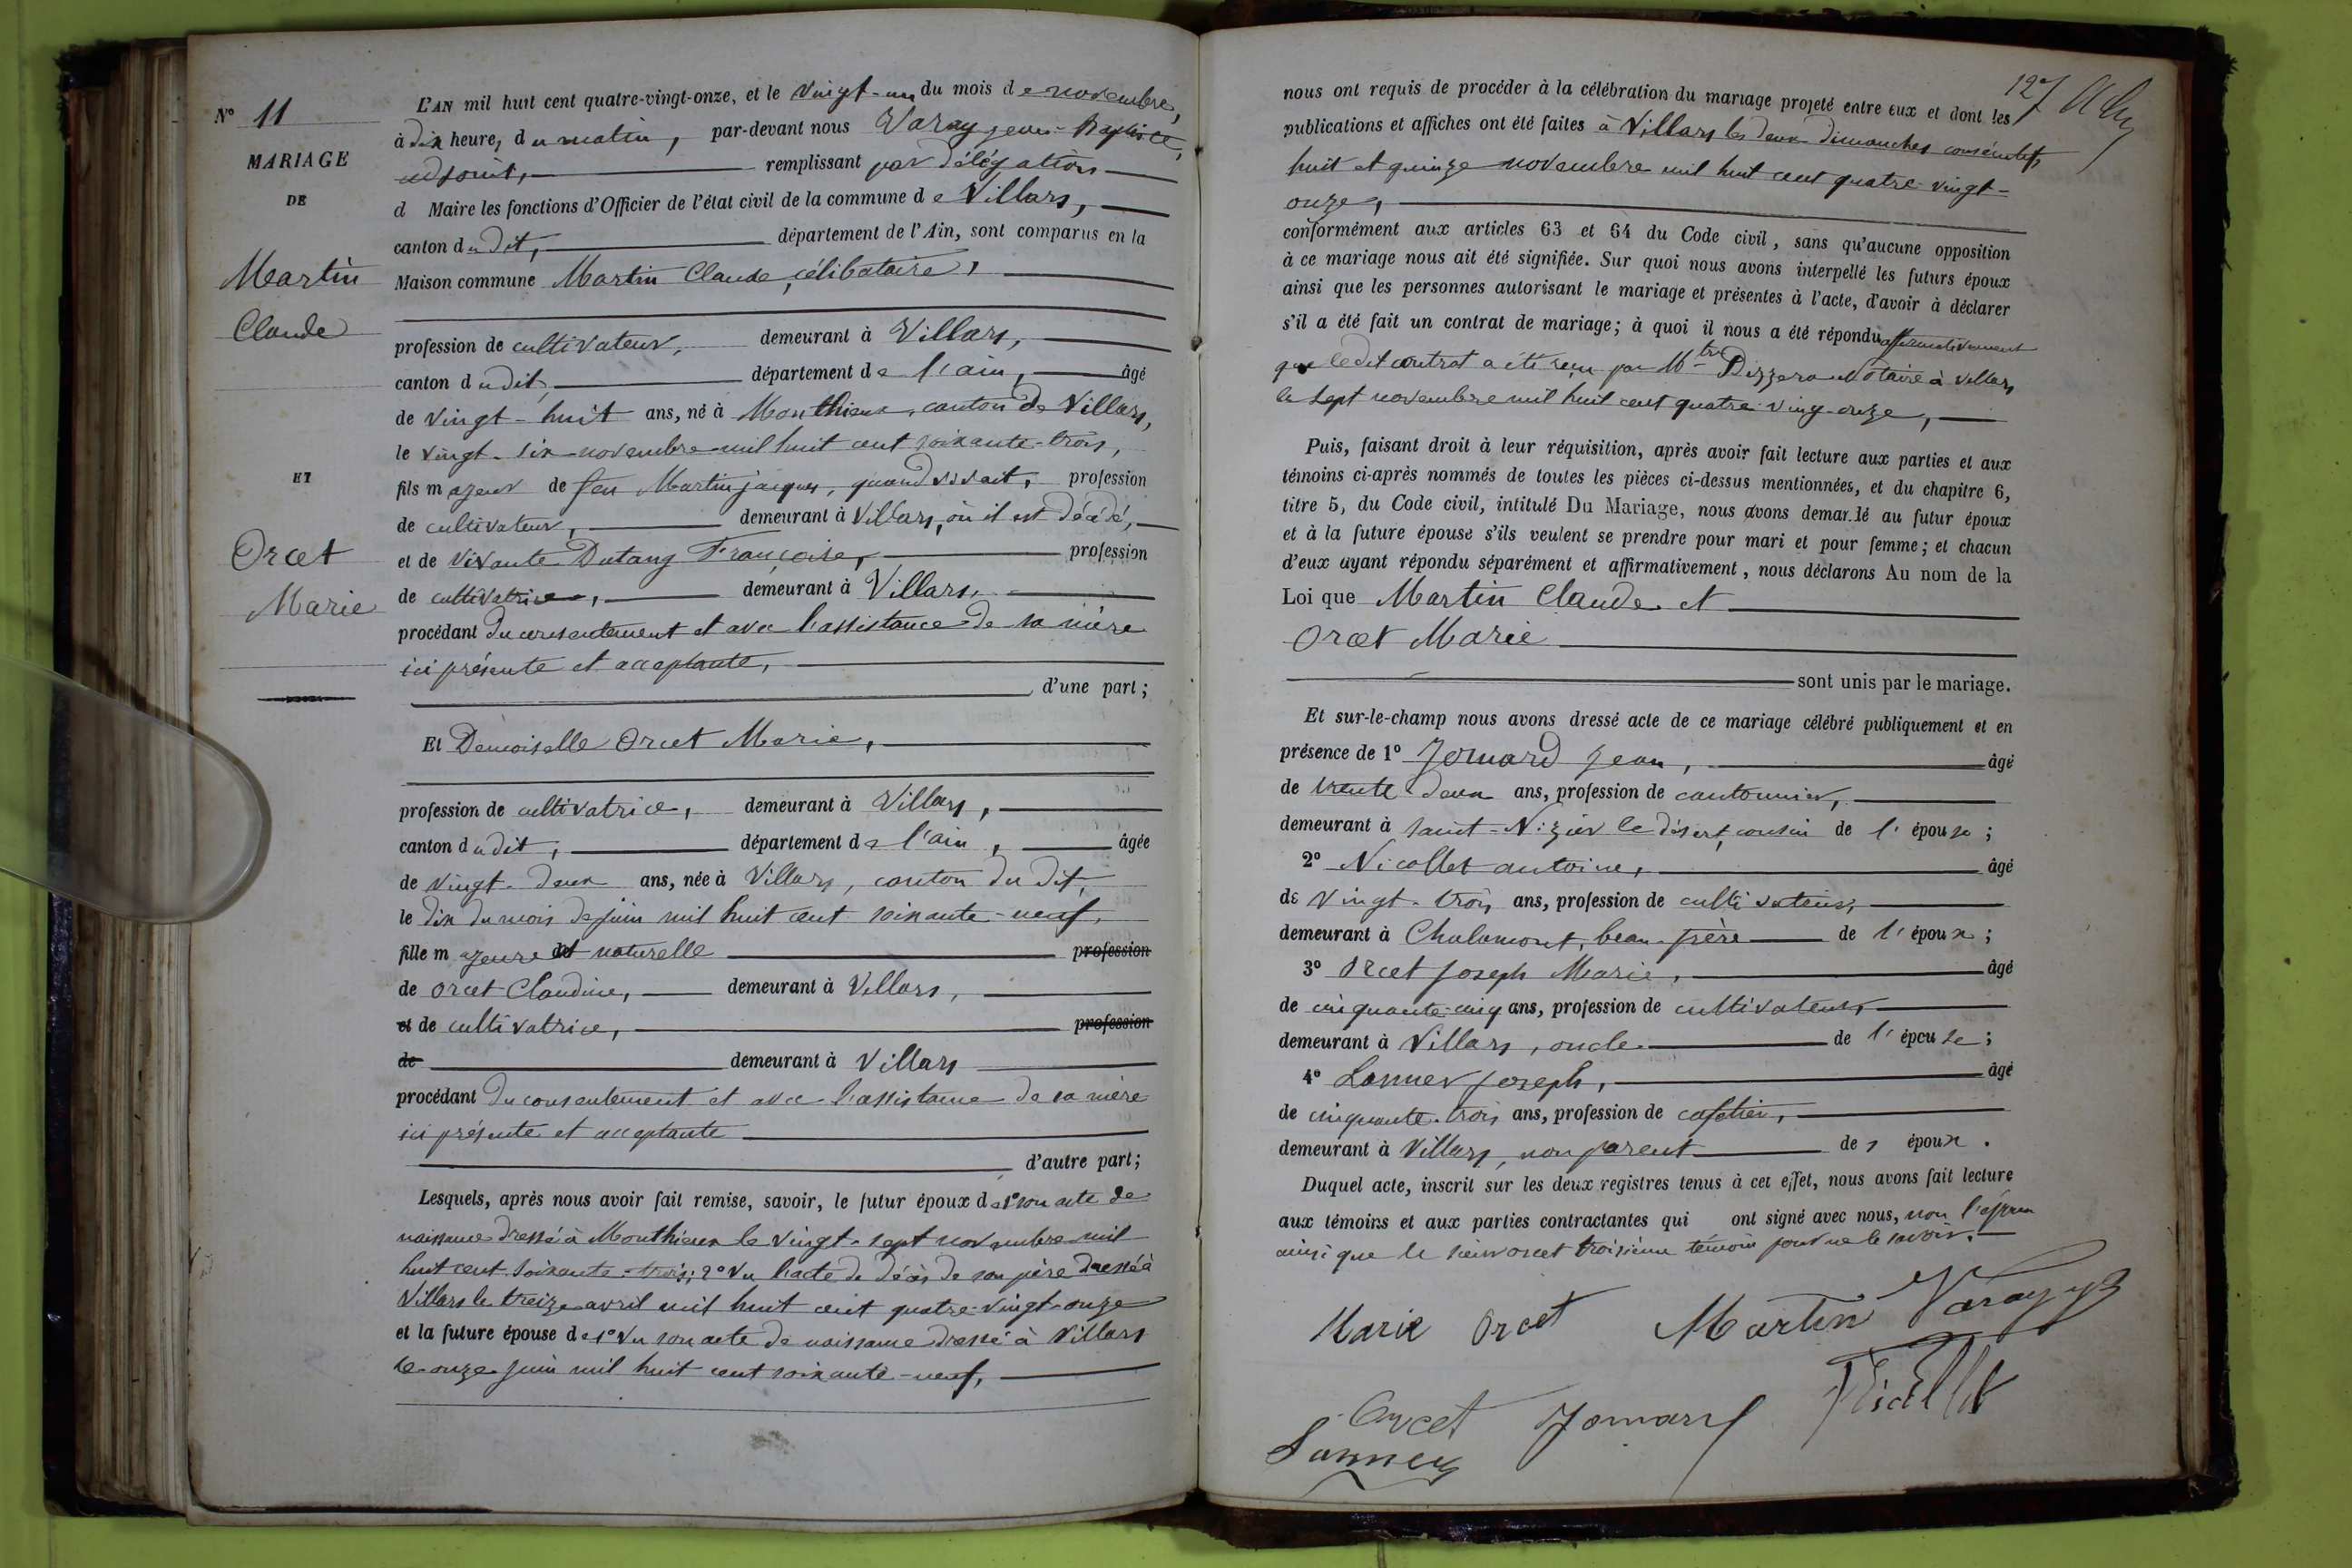 N° 11
MARIAGE
DE
Martin
Claude
ET
Orcet
Marie
L'AN mil huit cent quatre-vingt-onze, et le vingt-un du mois de novembre,
à dix heure, du matin, par-devant nous Varay jean-Baptiste,
adjoint, remplissant par délégation
d Maire les fonctions d'Officier de l'état civil de la commune de Villars,
canton du dit, département de l'Ain, sont comparus en la
Maison commune Martin Claude, célibataire,
profession de cultivateur, demeurant à Villars,
canton du dit, département de l'ain, âgé
de vingt-huit ans, né à Monthieux, canton de Villars,
le vingt-six novembre mil huit cent soixante-trois,
fils majeur de feu Martin jacques, quand vivait, profession
de cultivateur, demeurant à Villars, où il est décédé,
et de vivante Dutang Françoise, profession
de cultivatrice, demeurant à Villars,
procédant du consentement et avec l'assistance de sa mère
ici présente et acceptante,
d'une part;
Et Demoiselle Orcet Marie,
profession de cultivatrice, demeurant à Villars,
canton du dit, département de l'ain, âgée
de vingt-deux ans, née à Villars, canton du dit,
le dix du mois de juin mil huit cent soixante-neuf,
fille majeure et naturelle profession
de orcet Claudine, demeurant à Villars,
et de cultivatrice, profession
de demeurant à Villars
procédant du consentement et avec l'assistance de sa mère
ici présente et acceptante
d'autre part;
Lesquels, après nous avoir fait remise, savoir, le futur époux de 1° son acte de
naissance dressé à Monthieux le vingt-sept novembre mil
huit cent soixante-trois; 2° vu l'acte de décès de son père dressé à
Villars le treize avril mil huit cent quatre-vingt-onze
et la future épouse de 1° vu son acte de naissance dressé à Villars
le onze juin mil huit cent soixante-neuf,
127
nous ont requis de procéder à la célébration du mariage projeté entre eux et dont les
publications et affiches ont été faites à Villars les deux dimanches consécutifs
huit et quinze novembre mil huit cent quatre-vingt-
onze,
conformément aux articles 63 et 64 du Code civil, sans qu'aucune opposition
à ce mariage nous ait été signifiée. Sur quoi nous avons interpellé les futurs époux
ainsi que les personnes autorisant le mariage et présentes à l'acte, d'avoir à déclarer
s'il a été fait un contrat de mariage; à quoi il nous a été répondu affirmativement
que le dit contrat a été reçu par Mtre Notaire à Villars
le sept novembre mil huit cent quatre-ving-onze,
Puis, faisant droit à leur réquisition, après avoir fait lecture aux parties et aux
témoins ci-après nommés de toutes les pièces ci-dessus mentionnées, et du chapitre 6,
titre 5, du Code civil, intitulé Du Mariage, nous avons demandé au futur époux
et à la future épouse s'ils veulent se prendre pour mari et pour femme; et chacun
d'eux ayant répondu séparément et affirmativement, nous déclarons Au nom de la
Loi que Martin Claude et
Orcet Marie
sont unis par le mariage.
Et sur-le-champ nous avons dressé acte de ce mariage célébré publiquement et en
présence de 1° Jomard Jean, âgé
de trente deux ans, profession de cantonnier,
demeurant à saint-Nizier le désert, cousin de l'épouse;
2° Nicollet antoine, âgé
de vingt-trois ans, profession de cultivateur,
demeurant à Chalamont, beau-frère de l'époux;
3° Orcet Joseph Marie, âgé
de cinquante-cinq ans, profession de cultivateur,
demeurant à Villars, oncle de l'épouse;
4° Lanner Joseph, âgé
de cinquante-trois ans, profession de cafetier,
demeurant à Villars, non parent des époux.
Duquel acte, inscrit sur les deux registres tenus à cet effet, nous avons fait lecture
aux témoins et aux parties contractantes qui ont signé avec nous, non
ainsi que le sieur orcet troisième témoin pour ne le savoir.
Marie Orcet Martin Varay
Orcet Jomard